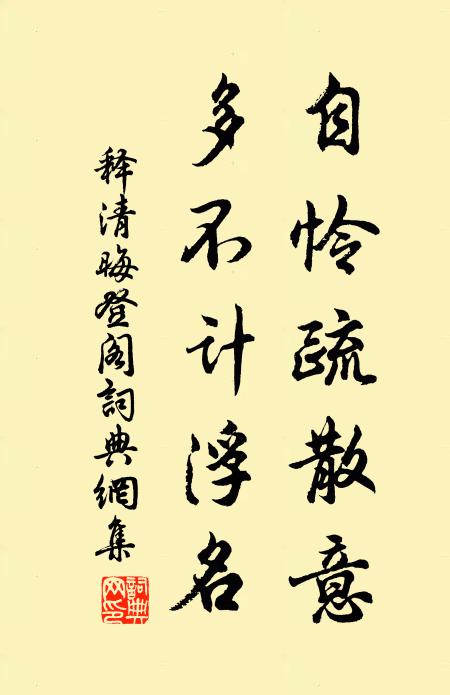 自怜疏散意
多不计浮名
释清晦登阁詞典網集
詞典網印